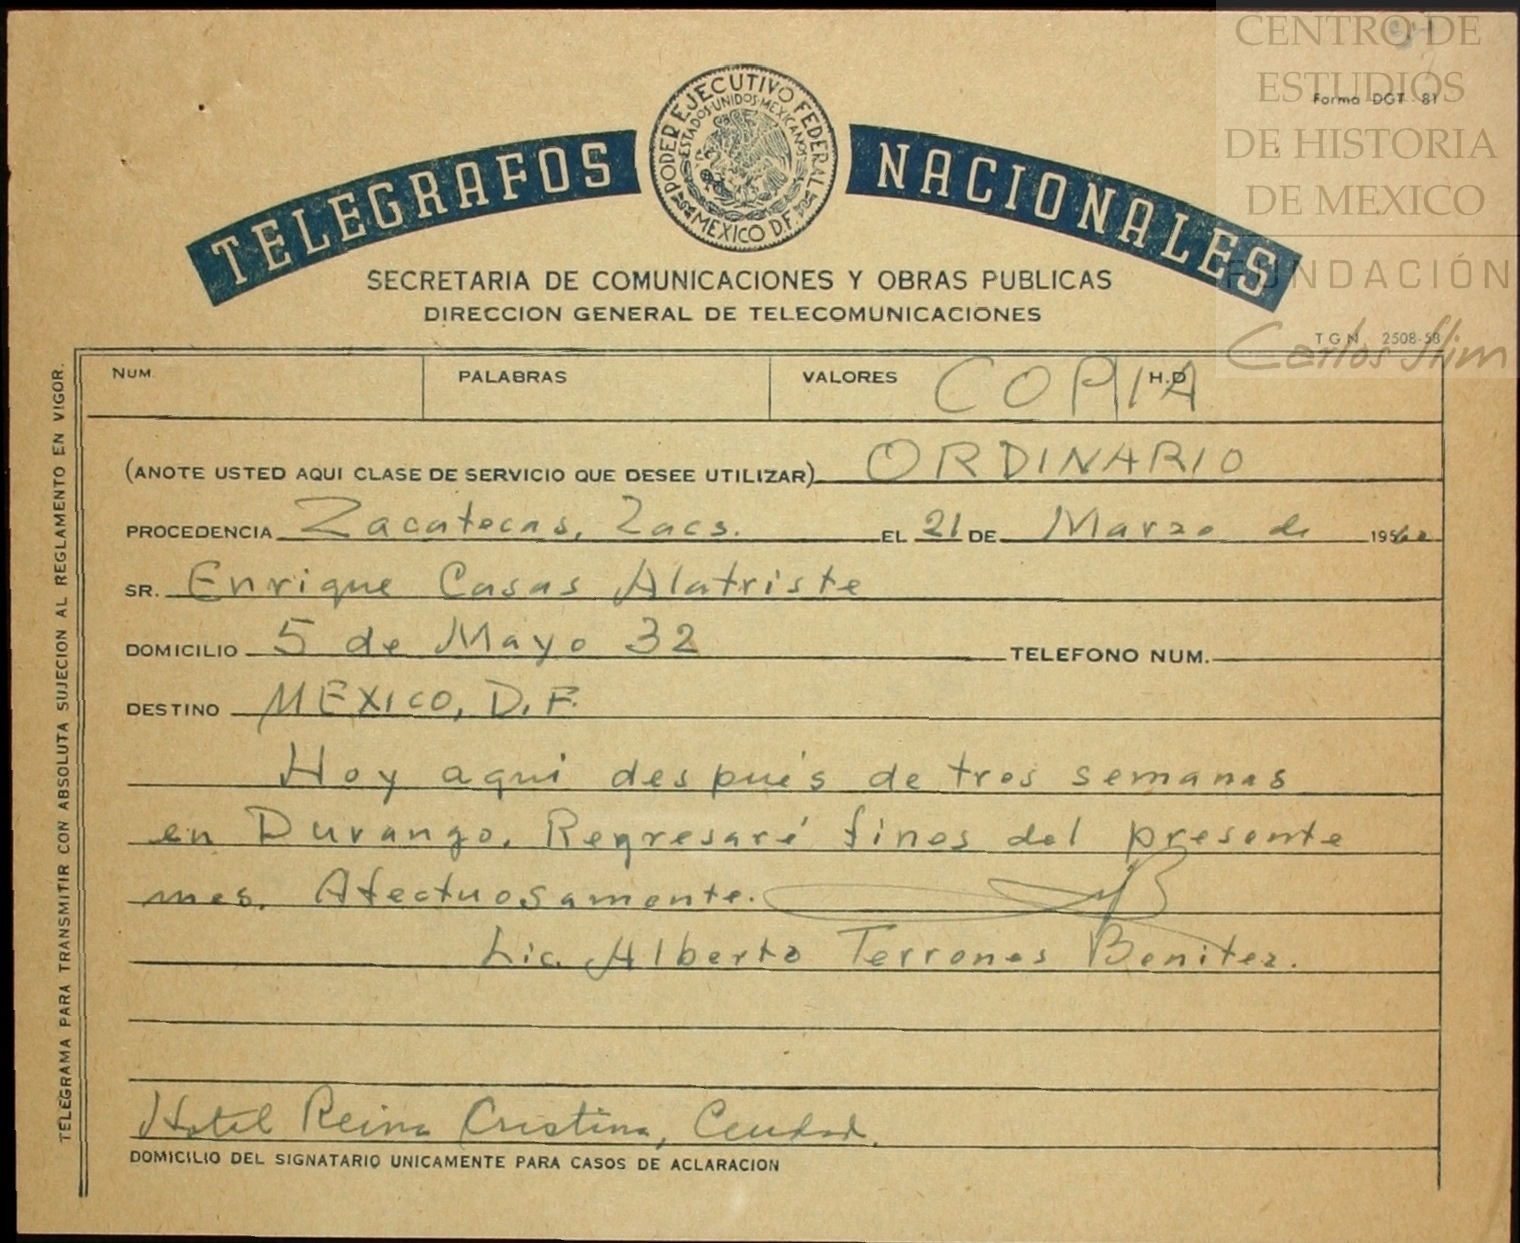 CENTRO DE
ESTUDIOS
DE HISTORIA
DE MEXICO
FUNDACIÓN
Carlos Slim
Forma DGT 81
TELEGRAFOS NACIONALES
PODER EJECUTIVO FEDERAL
ESTADOS UNIDOS MEXICANOS
MEXICO D.F.
SECRETARIA DE COMUNICACIONES Y OBRAS PUBLICAS
DIRECCION GENERAL DE TELECOMUNICACIONES
T G N 2508-58
NUM. PALABRAS VALORES COPIA H.D.
(ANOTE USTED AQUI CLASE DE SERVICIO QUE DESEE UTILIZAR) ORDINARIO
PROCEDENCIA Zacatecas, Zacs. EL 21 DE Marzo de 195
SR. Enrique Casas Alatriste
DOMICILIO 5 de Mayo 32 TELEFONO NUM.
DESTINO MEXICO, D.F.
Hoy aqui después de tres semanas
en Durango. Regresaré fines del presente
mes. Afectuosamente.
Lic. Alberto Terrones Benitez.
Hotel Reina Cristina, Ciudad.
DOMICILIO DEL SIGNATARIO UNICAMENTE PARA CASOS DE ACLARACION
TELEGRAMA PARA TRANSMITIR CON ABSOLUTA SUJECION AL REGLAMENTO EN VIGOR.